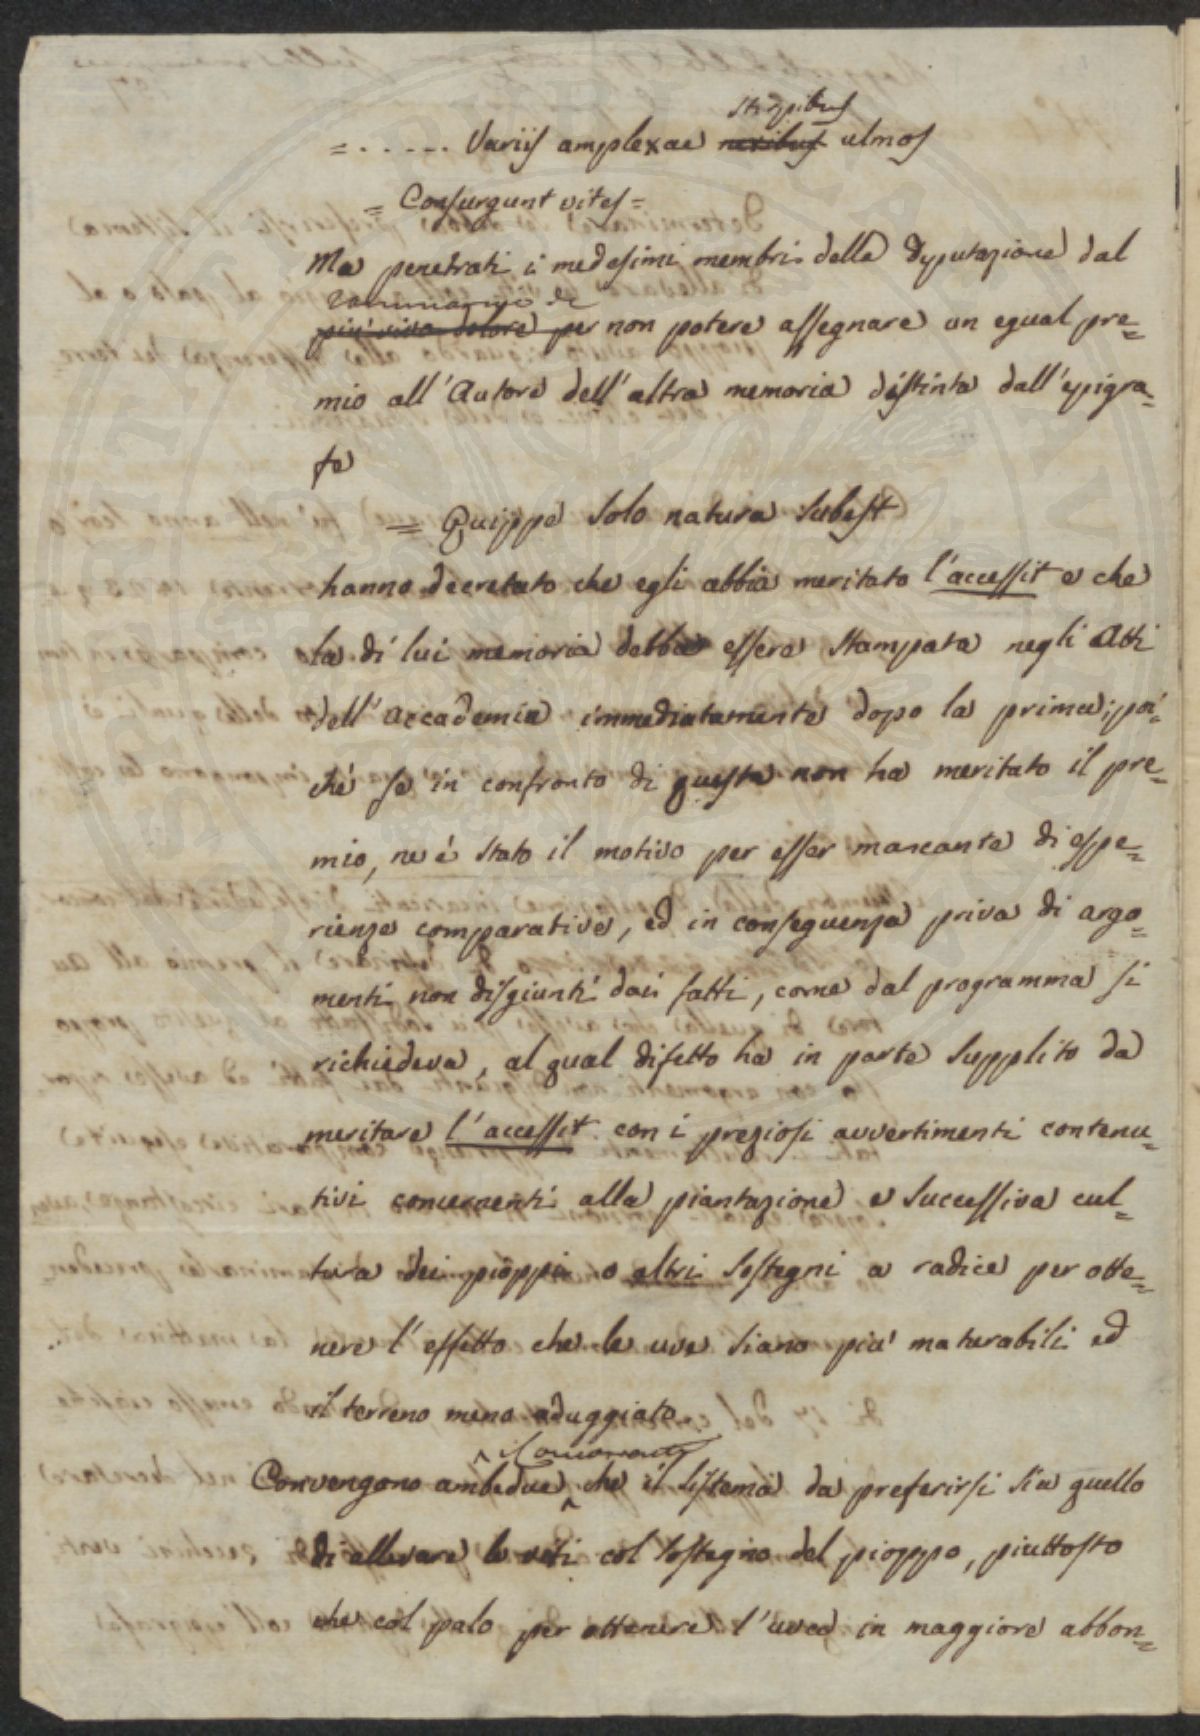 stirpibus
=...... Variis amplexae nexibus ulmos
= Consurgunt vites =
Ma penetrati i medesimi membri della Dyputazione dal
rammarico di
più vivo dolore per non potere assegnare un egual pre=
mio all'Autore dell'altra memoria distinta dall'epigra=
fe
= Quippe solo natura subest
hanno decretato che egli abbia meritato l'accessit e che
la di lui memoria debba essere stampata negli Atti
dell'Accademia immediatamente dopo la prima; poi=
chè se in confronto di questa non ha meritato il pre=
mio, ne è stato il motivo per esser mancante di espe=
rienze comparative, ed in conseguenza priva di argo=
menti non disgiunti dai fatti, come dal programma si
richiedeva, al qual difetto ha in parte supplito da
meritare l'accessit con i preziosi avvertimenti contenu=
tivi concernenti alla piantazione e successiva cul=
tura dei pioppi o altri sostegni a radice per otte=
nere l'effetto che le uve siano più maturabili ed
il terreno meno aduggiato
Convengono ambedue che il sistema da preferirsi sia quello
di allevare le viti col sostegno del pioppo, piuttosto
che col palo per ottenere l'uva in maggiore abbon=